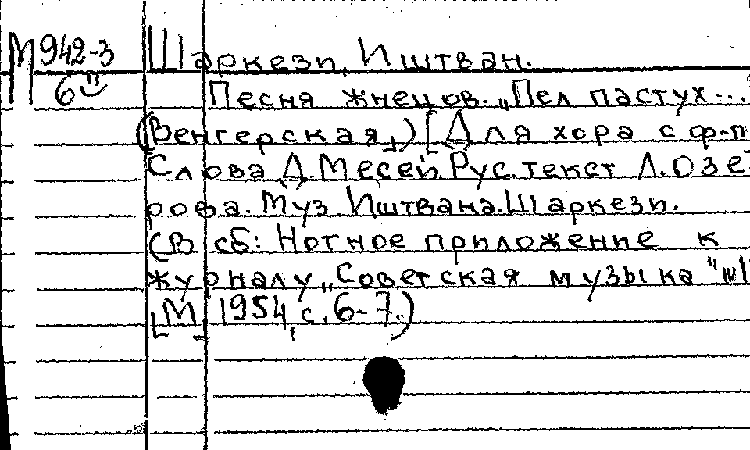 М 942-3 Шаркези, Иштван.
6
Песня жнецов. „Пел пастух...
(Венгерская,) [Для хора с ф-п
Слова Д. Месей. Рус. текст Л. Озе-
рова. Муз. Иштвана. Шаркези.
(В сб: Нотное приложение к
журналу „Советская музыка" №1
[М] 1954, с. 6-7.)